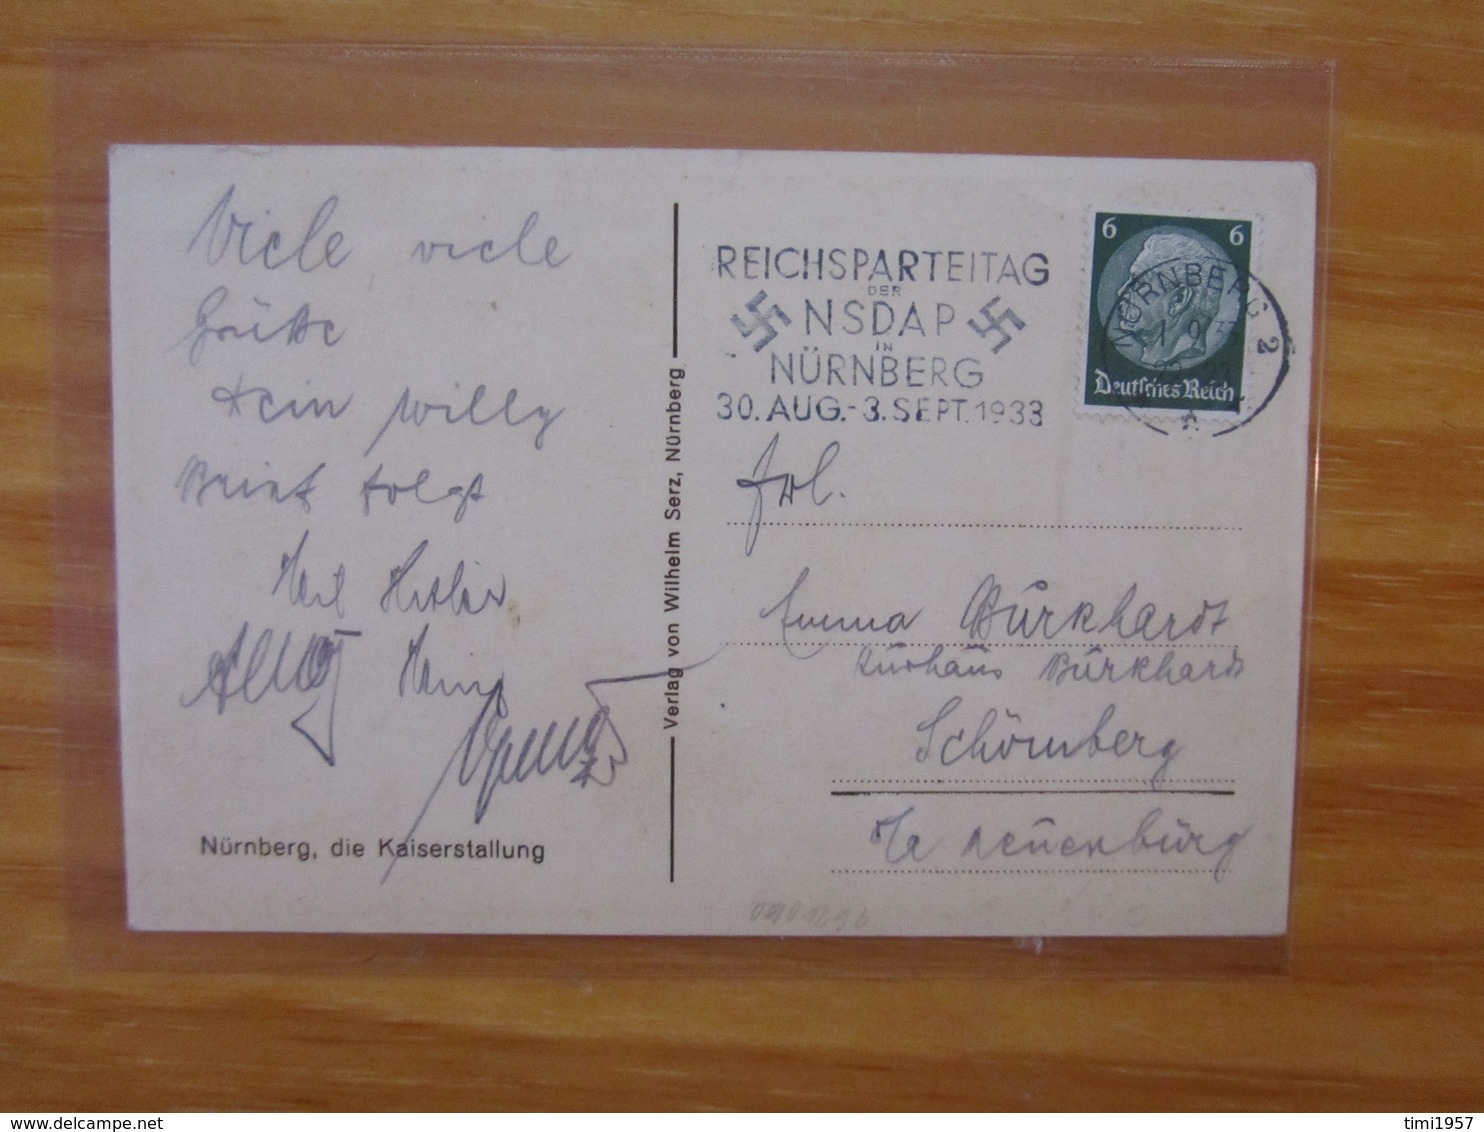 Viele, viele
Grüße
Dein Willy
Brief folgt
Heil Hitler
Heinz
Nürnberg, die Kaiserstallung
Verlag von Wilhelm Serz, Nürnberg
REICHSPARTEITAG
DER
NSDAP
IN
NÜRNBERG
30. AUG.-3. SEPT. 1933
6 6
Deutsches Reich
NÜRNBERG 2
1 9 33
Frl.
Emma Burkhardt
Kurhaus Burkhardt
Schömberg
o/a Neuenbürg
timi1957